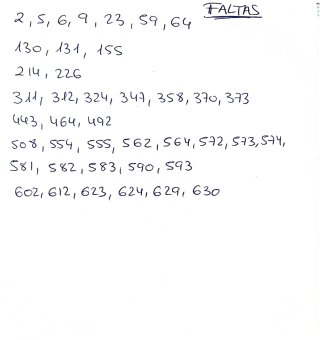 FALTAS
2, 5, 6, 9, 23, 59, 64
130, 131, 155
214, 226
311, 312, 324, 347, 358, 370, 373
443, 464, 492
508, 554, 555, 562, 564, 572, 573, 574,
581, 582, 583, 590, 593
602, 612, 623, 624, 629, 630